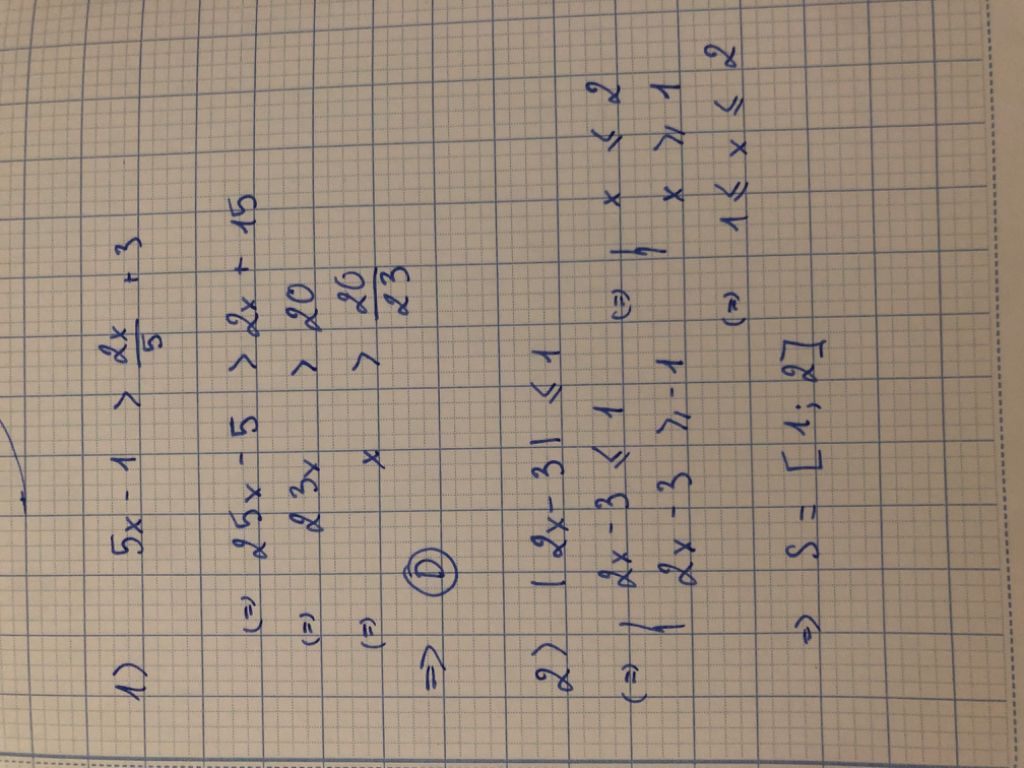 1) 5x - 1 > 2x/5 + 3
(=) 25x - 5 > 2x + 15
(=) 23x > 20
(=) x > 20/23
=> D
2) | 2x - 3 | ≤ 1
(=) { 2x - 3 ≤ 1 (=) { x ≤ 2
2x - 3 ≥ -1 x ≥ 1
(=) 1 ≤ x ≤ 2
=> S = [1; 2]